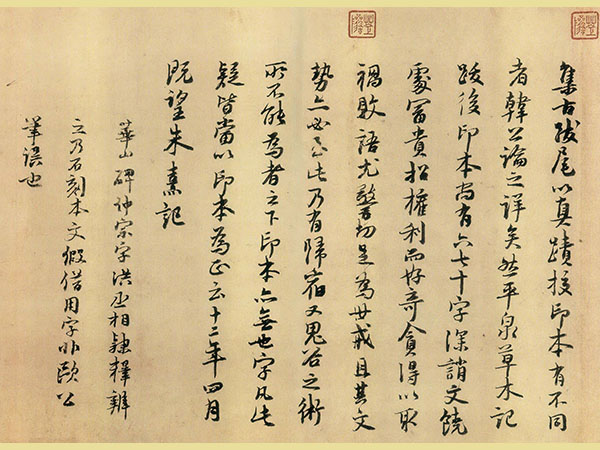 集古跋尾以真蹟挍印本有不同
者韓公論之詳矣然平泉草木記
跋後印本尚有六七十字深誚文饒
處冨貴招權利而好奇貪得以取
禍敗語尤警切足為世戒且其文
勢亦必至此乃有歸宿又鬼谷之術
所不能為者之下印本亦無也字凡此
疑皆當以印本為正云十二年四月
既望朱熹記
華山碑仲宗字洪丞相隸釋辨
之乃石刻本文假借用字非歐公
筆誤也